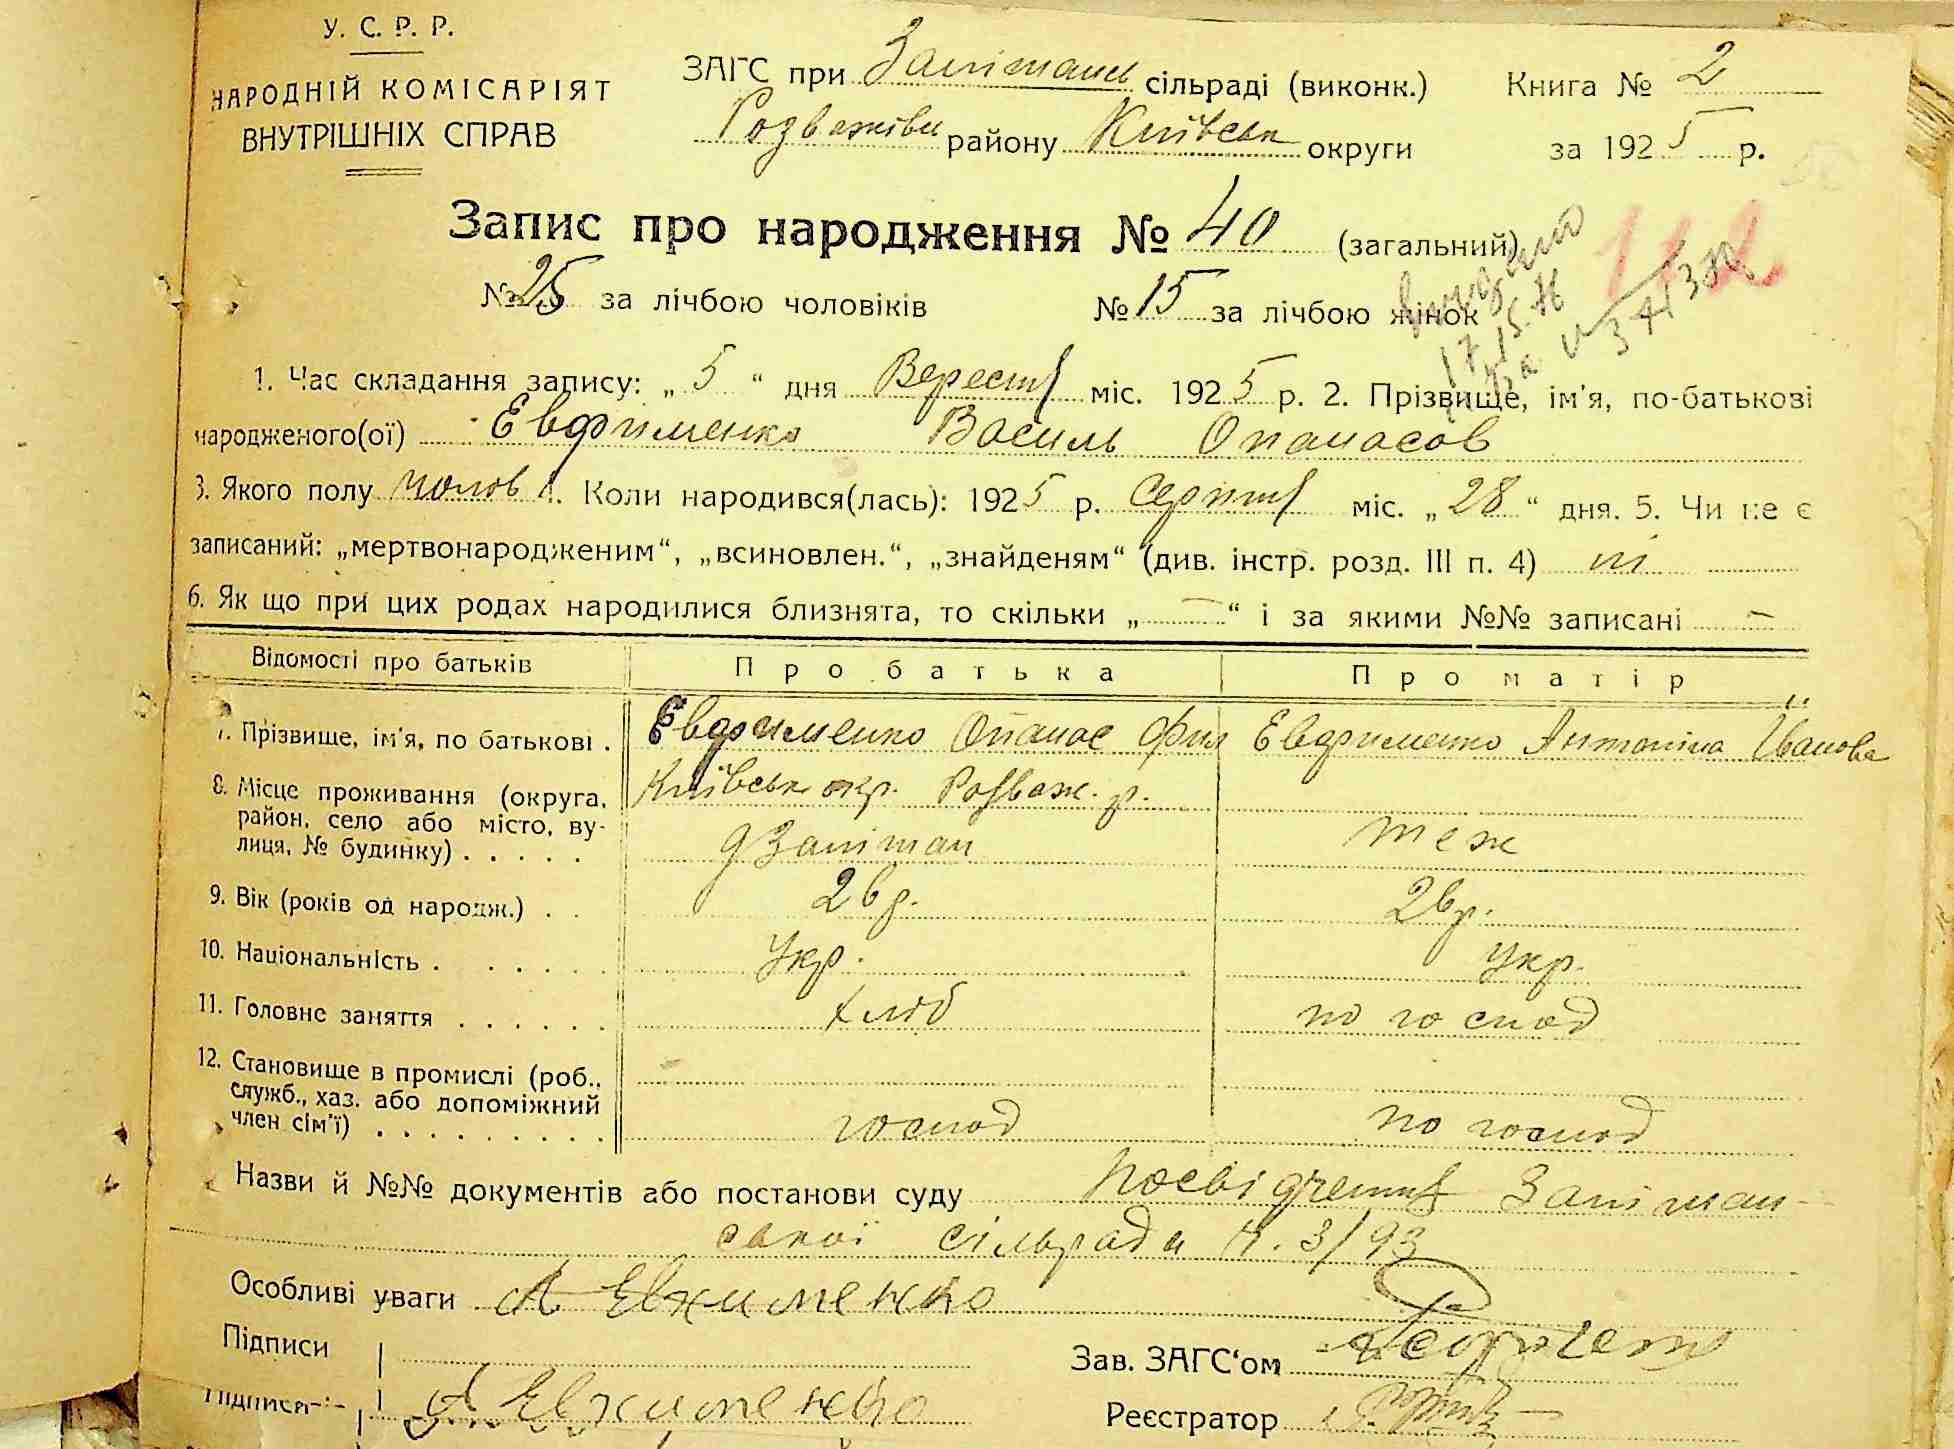 У. С. Р. Р.
НАРОДНІЙ КОМІСАРІЯТ
ВНУТРІШНІХ СПРАВ
ЗАГС при Запітанс сільраді (виконк.) Книга № 2
Розважівс району Київськ округи за 1925 р.
Запис про народження № 40 (загальний)
112
№ 25 за лічбою чоловіків № 15 за лічбою жінок
1. Час складання запису: „ 5 “ дня Вересня міс. 1925 р. 2. Прізвище, ім'я, по-батькові
народженого(ої) Евфименко Василь Опанасов
3. Якого полу чолов 4. Коли народився(лась): 1925 р. Серпня міс. „ 28 “ дня. 5. Чи не є
записаний: „мертвонародженим“, „всиновлен.“, „знайденям“ (див. інстр. розд. III п. 4) ні
6. Як що при цих родах народилися близнята, то скільки „ — “ і за якими №№ записані —
Відомості про батьків Про батька Про матір
7. Прізвище, ім'я, по батькові . Евфименко Опанас Фил Евфименко Антоніна Іванова
8. Місце проживання (округа, район, село або місто, вулиця, № будинку) . . . . . Київськ окр. Розваж. р.
Запітан теж
9. Вік (років од народж.) . . 26 р. 26 р.
10. Національність . . . . . . Укр. Укр.
11. Головне заняття . . . . . . хліб по господ
12. Становище в промислі (роб., служб., хаз. або допоміжний член сім'ї) . . . . . . . . . господ по господ
Назви й №№ документів або постанови суду Посвідчення Запітан-
ської сільради ч. 3/93
Особливі уваги А Евхименко
Підписи
Зав. ЗАГС‘ом
Підписи А Евхименко
Реєстратор